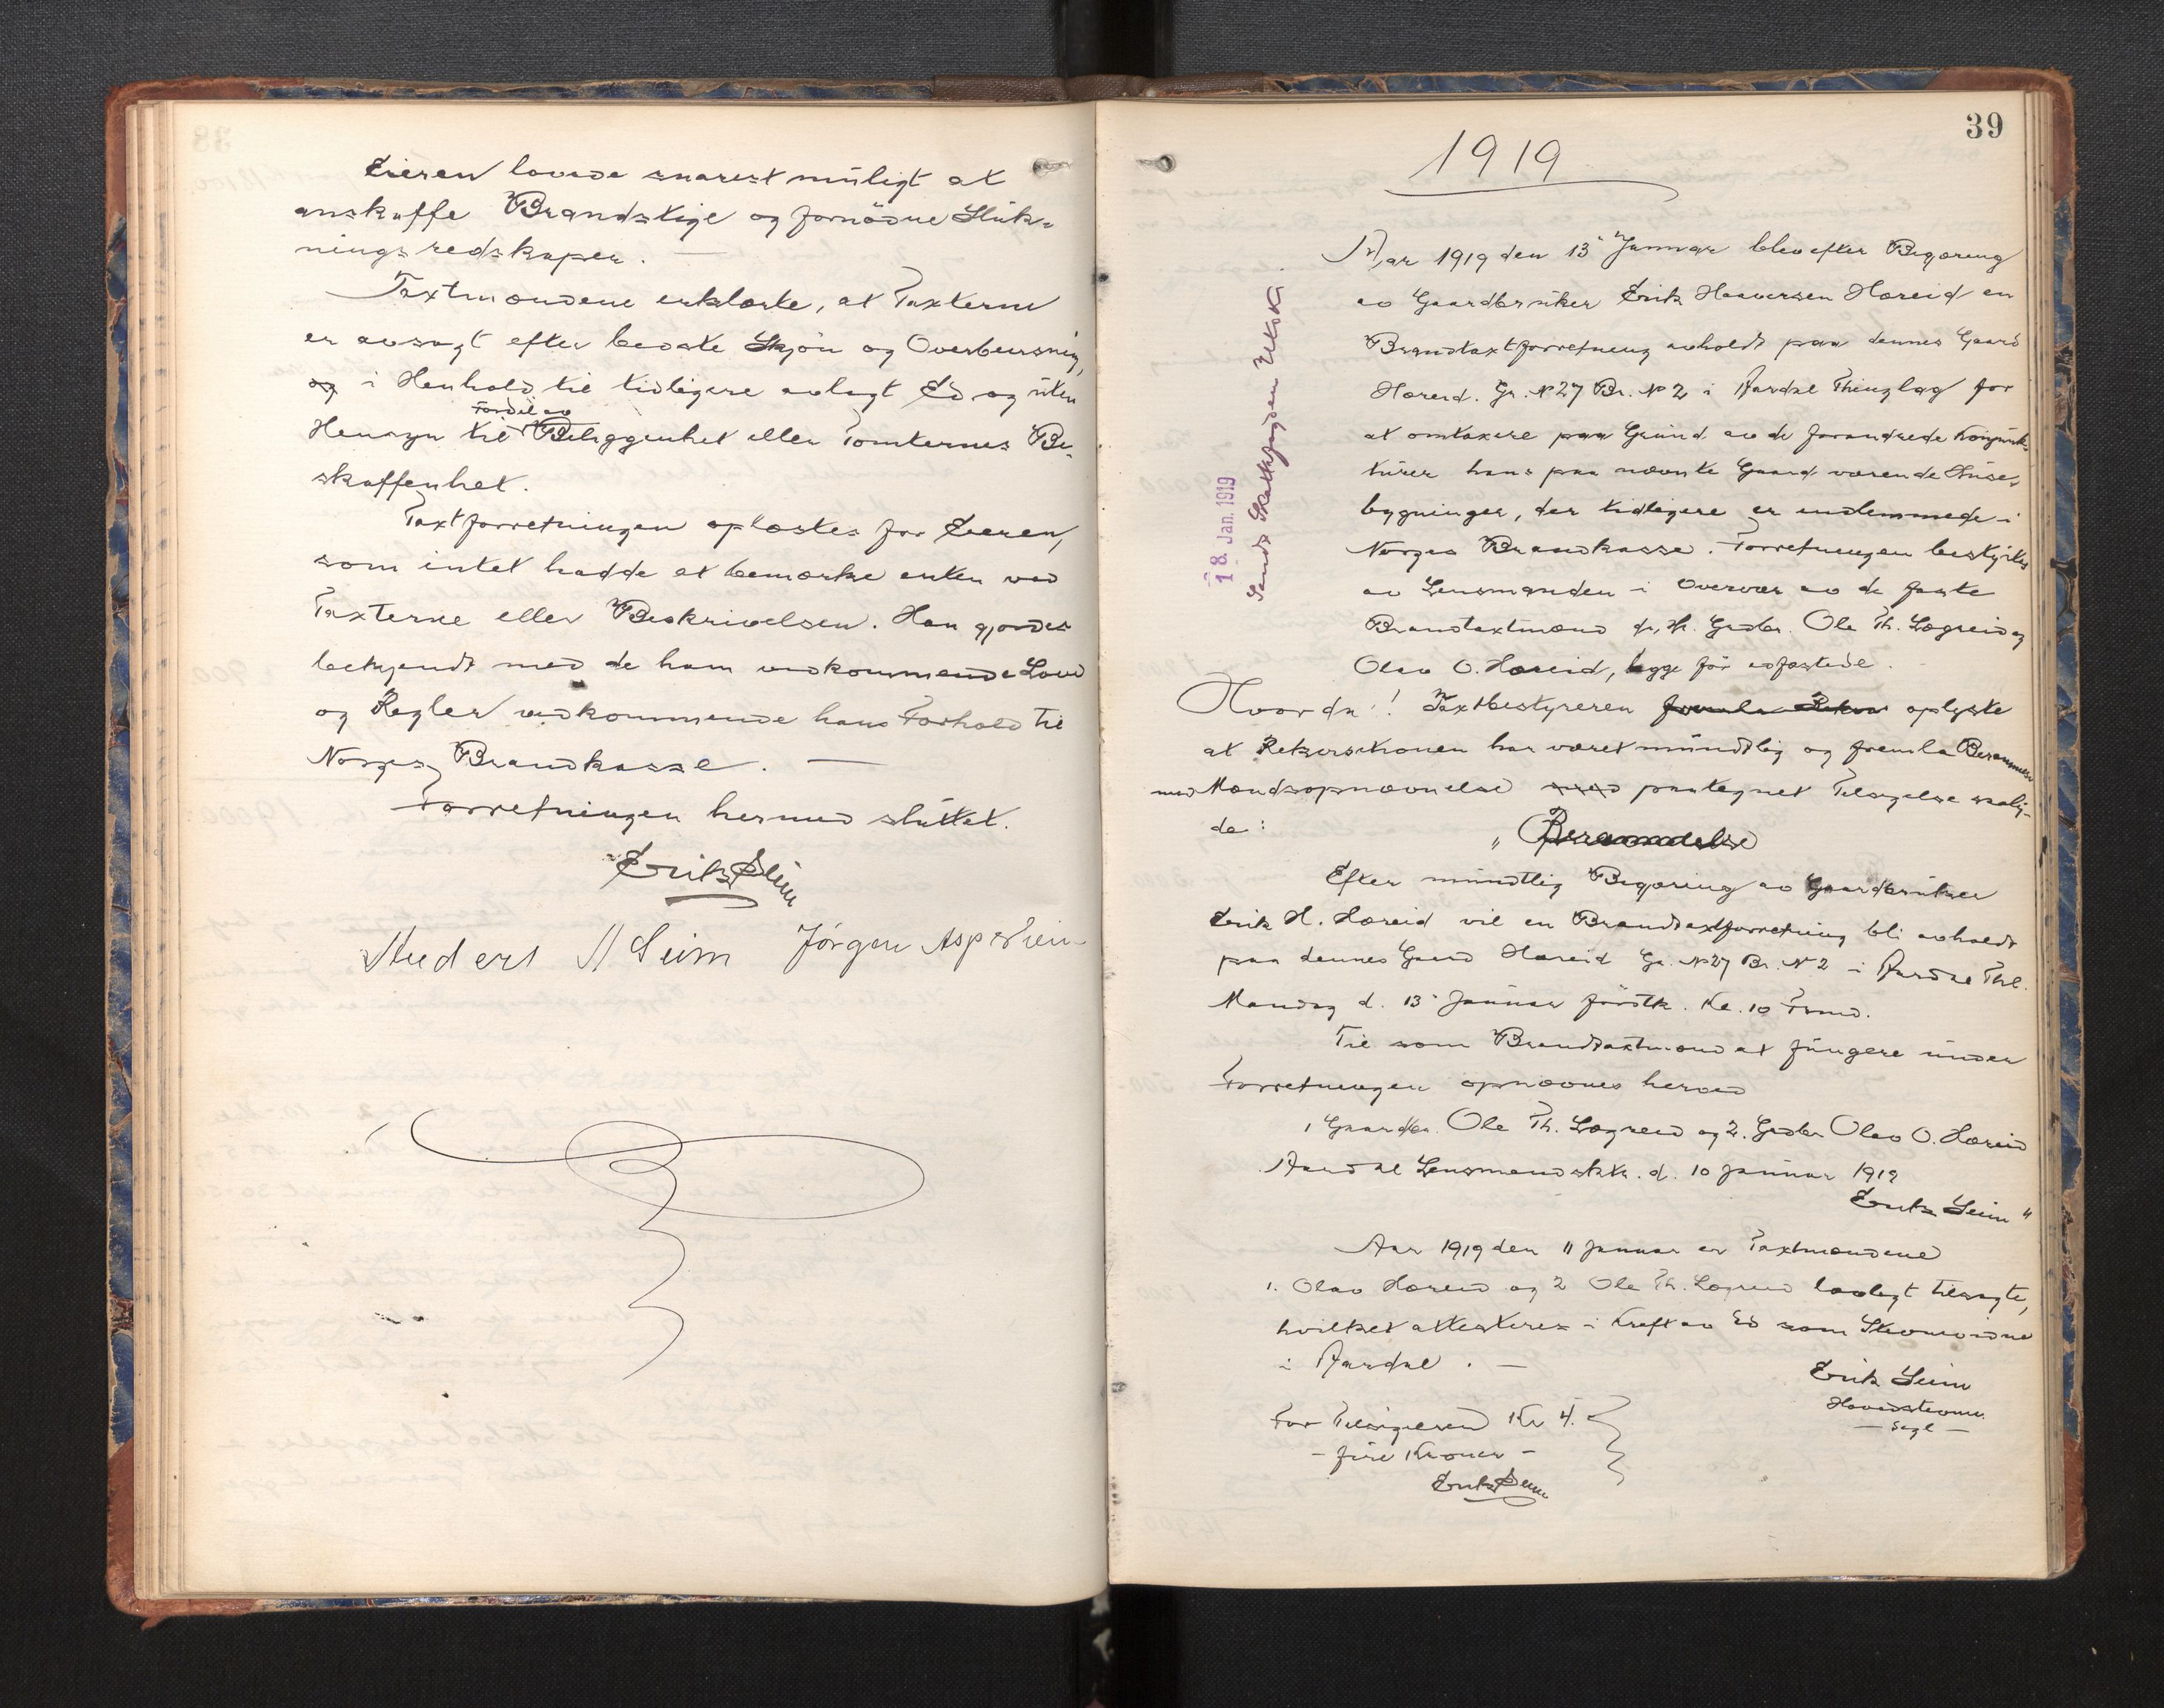 Eieren lovede snarest muligt at
anskaffe Brandstige og fornödne Sluk-
ningsredskaper. —
Taxtmændene erklærte, at Taxterne
er avsagt efter bedste Skjön og Overbevisning,
og i Henhold til tidligere avlagt Ed og uten
Fordel av
Hensyn til Beliggenhet eller Tomternes Be-
skaffenhet.
Taxtforretningen oplæstes for Eieren,
som intet hadde at bemærke enten ved
Taxterne eller Beskrivelsen. Han gjordes
bekjendt med de ham vedkommende Love
og Regler vedkommende hans Forhold til
Norges Brandkasse. —
Forretningen hermed sluttet.
Erik Seim
Anders A Seim Jörgen Asperheim
39
1919
Aar 1919 den 13 Januar blev efter Begjæring
av Gaardbruker Erik Haaversen Hæreid en
Brandtaxtforretning avholdt paa dennes Gaard
Hæreid. Gr. № 27 Br. № 2 i Aardal Thinglag for
at omtaxere paa Grund av de forandrede Konjunk-
turer hans paa nævnte Gaard værende Huse-
bygninger, der tidligere er indlemmede i
Norges Brandkasse. Forretningen bestyrtes
av Lensmanden i Overvær av de faste
Brandtaxtmænd Grdbr. Ole Th. Lægreid og
Olav O. Hæreid, begge för edfæstede.
18. Jan. 1919
Sendt Skattefogden Utskr.
Hvorda! Taxtbestyreren fremla oplyste
at Rekvisitionen har været mundtlig og fremla Berammelse
med Mændsopnævnelse med paategnet Tilsigelse saaly-
de:
„ Berammelse
Efter mundtlig Begjæring av Gaardbruker
Erik H. Hæreid vil en Brandtaxtforretning bli avholdt
paa dennes Gaard Hæreid Gr. № 27 Br. № 2 i Aardal Thl.
Mandag d. 13 Januar förstk. Kl. 10 Form.
Til som Brandtaxtmænd at fungere under
Forretningen opnævnes herved
1 Gaardbr. Ole Th. Lægreid og 2. Grdbr Olav O. Hæreid
Aardal Lensmandsktr. d. 10 Januar 1919
Erik Seim "
Aar 1919 den 11 Januar er Taxtmændene
1. Olav Hæreid og 2 Ole Th. Lægreid lovlegt tilsagte,
hvilket attesteres i Kraft av Ed som Stevnevidne
i Aardal. —
Erik Seim
Hovedstevnev.
— Segl —
For Tilsigelsen Kr 4.
— fire Kroner —
Erik Seim